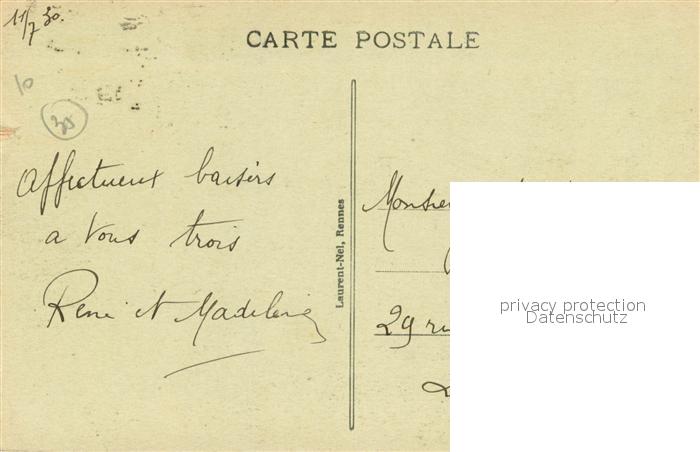 11/7 30.
CARTE POSTALE
10
30
Affectueux baisers
a vous trois
René et Madeleine
Laurent-Nel, Rennes
29 ru
privacy protection
Datenschutz